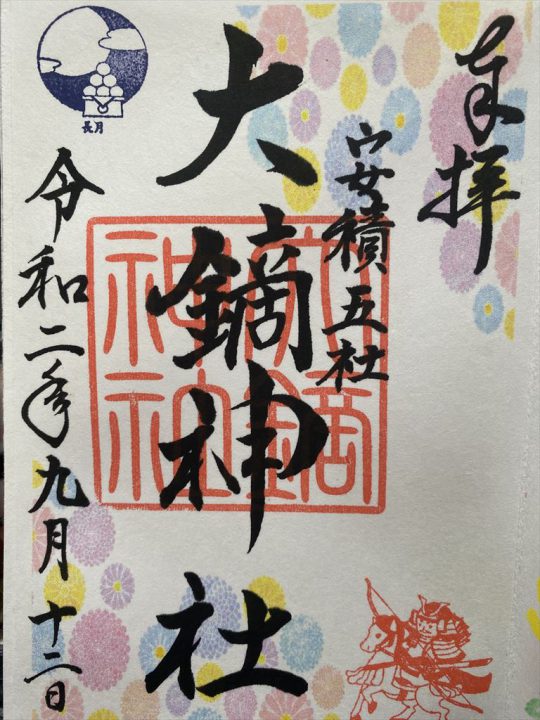 奉拝
安積五社
大鏑神社
令和二年九月十二日
長月